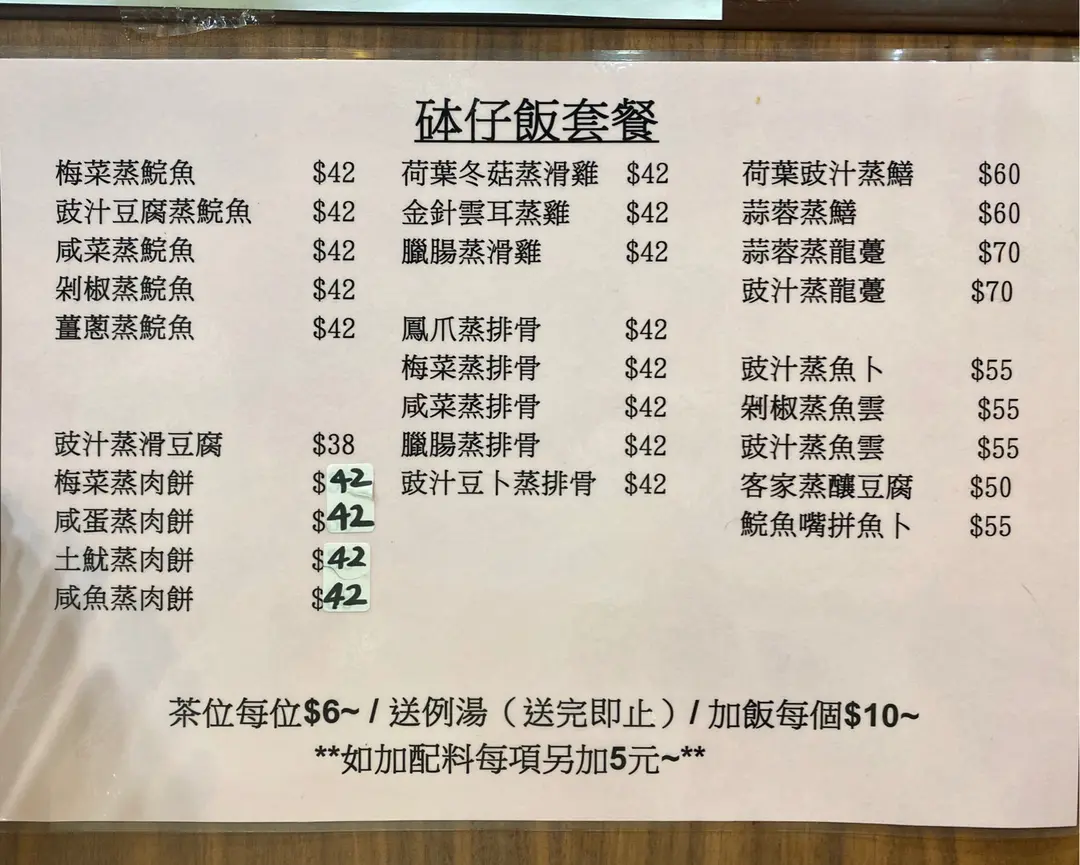 砵仔飯套餐
梅菜蒸鯇魚 $42
豉汁豆腐蒸鯇魚 $42
咸菜蒸鯇魚 $42
剁椒蒸鯇魚 $42
薑蔥蒸鯇魚 $42
豉汁蒸滑豆腐 $38
梅菜蒸肉餅 $42
咸蛋蒸肉餅 $42
土魷蒸肉餅 $42
咸魚蒸肉餅 $42
荷葉冬菇蒸滑雞 $42
金針雲耳蒸雞 $42
臘腸蒸滑雞 $42
鳳爪蒸排骨 $42
梅菜蒸排骨 $42
咸菜蒸排骨 $42
臘腸蒸排骨 $42
豉汁豆卜蒸排骨 $42
荷葉豉汁蒸鱔 $60
蒜蓉蒸鱔 $60
蒜蓉蒸龍躉 $70
豉汁蒸龍躉 $70
豉汁蒸魚卜 $55
剁椒蒸魚雲 $55
豉汁蒸魚雲 $55
客家蒸釀豆腐 $50
鯇魚嘴拼魚卜 $55
茶位每位$6~ / 送例湯（送完即止）/ 加飯每個$10~
**如加配料每項另加5元~**